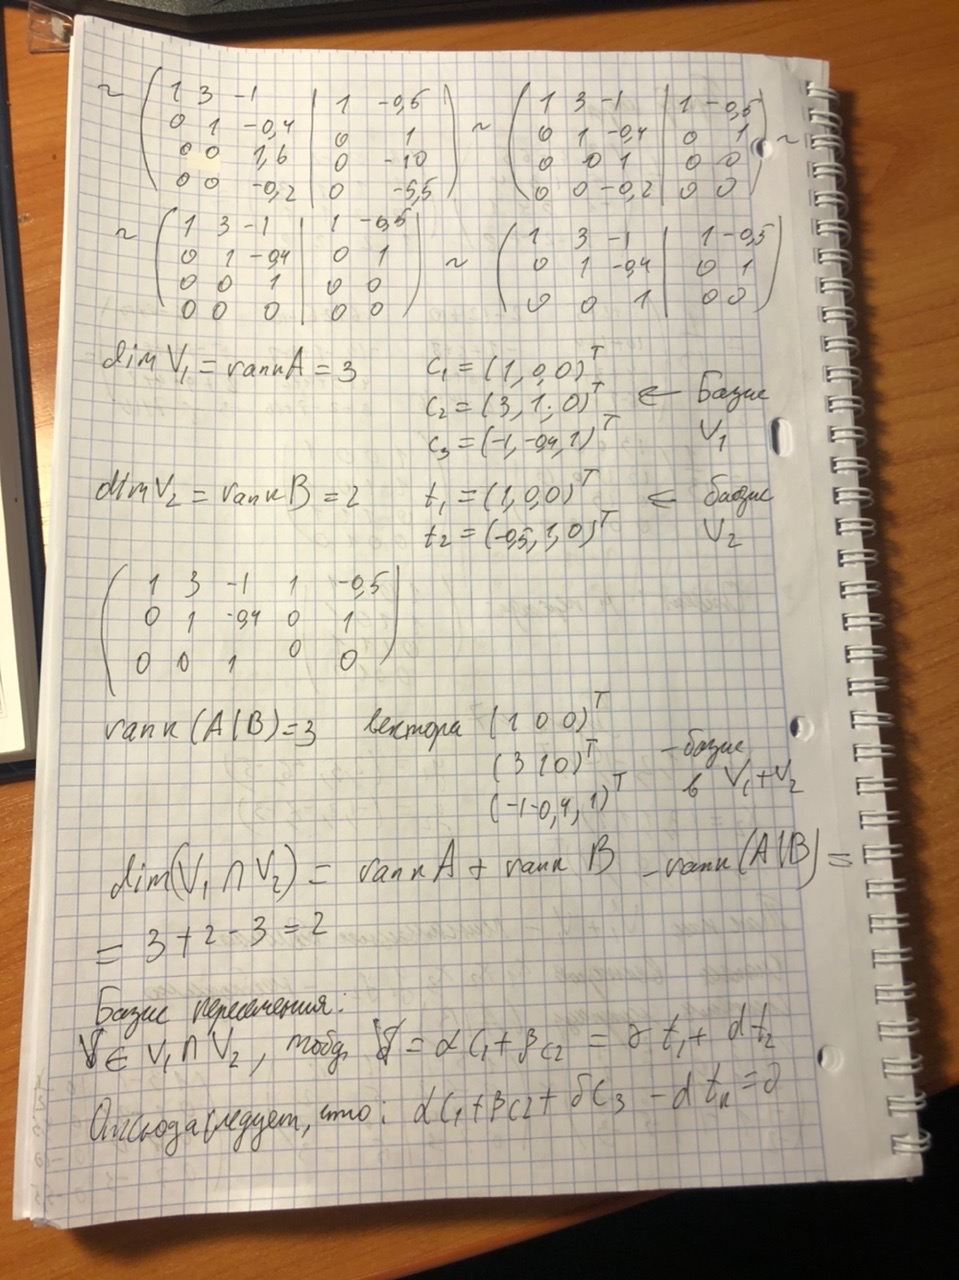 ~ ( 1 3 -1 | 1 -0,5 ) ~ ( 1 3 -1 | 1 -0,5 ) ~
0 1 -0,4 | 0 1 0 1 -0,4 | 0 1
0 0 1,6 | 0 -10 0 0 1 | 0 0
0 0 -0,2 | 0 -5,5 0 0 -0,2 | 0 0
~ ( 1 3 -1 | 1 -0,5 ) ~ ( 1 3 -1 | 1 -0,5 )
0 1 -0,4 | 0 1 0 1 -0,4 | 0 1
0 0 1 | 0 0 0 0 1 | 0 0
0 0 0 | 0 0
dim V₁ = rank A = 3 c₁ = (1, 0, 0)ᵀ
c₂ = (3, 1, 0)ᵀ ← Базис
c₃ = (-1, -0,4, 1)ᵀ V₁
dim V₂ = rank B = 2 t₁ = (1, 0, 0)ᵀ ← базис
t₂ = (-0,5, 1, 0)ᵀ V₂
( 1 3 -1 1 -0,5 )
0 1 -0,4 0 1
0 0 1 0 0
rank (A|B) = 3 вектора (1 0 0)ᵀ
(3 1 0)ᵀ - базис
(-1 -0,4, 1)ᵀ в V₁+V₂
dim(V₁ ∩ V₂) = rank A + rank B - rank (A|B) =
= 3 + 2 - 3 = 2
Базис пересечения:
∈ V₁ ∩ V₂, тогда = αc₁ + βc₂ = γt₁ + dt₂
Отсюда следует, что: αc₁ + βc₂ + δc₃ - d = 0